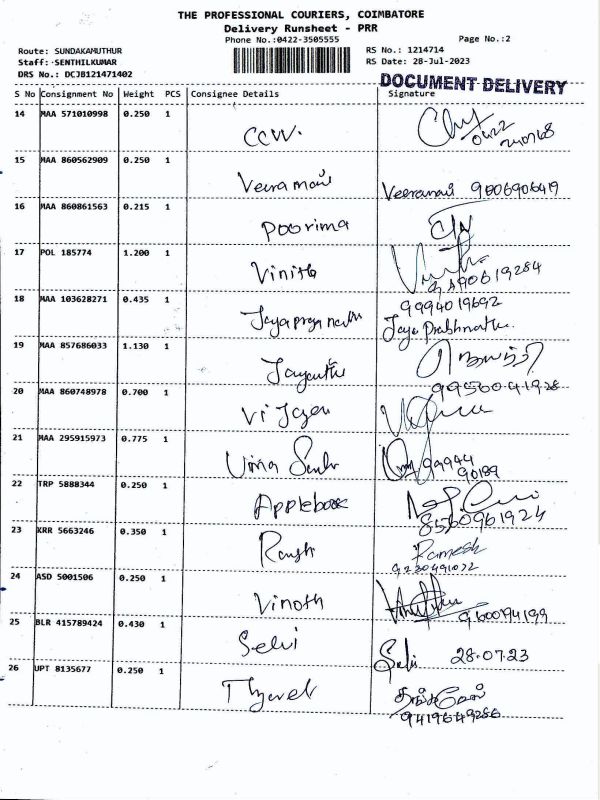 THE PROFESSIONAL COURIERS, COIMBATORE
Delivery Runsheet - PRR
Phone No.:0422-3505555
Page No.:2
Route: SUNDAKAMUTHUR
RS No.: 1214714
Staff: SENTHILKUMAR
RS Date: 28-Jul-2023
DRS No.: DCJB121471402
DOCUMENT DELIVERY
S No Consignment No Weight PCS Consignee Details Signature
14 MAA 571010998 0.250 1 CCW.
0422
15 MAA 860562909 0.250 1 Veeramani Veeramani 9006906419
16 MAA 860861563 0.215 1 Poorima
17 POL 185774 1.200 1 Vinith
18 MAA 103628271 0.435 1 9994019692
Jaya Prabhnathu.
19 MAA 857686033 1.130 1 Jayanthi ஜெயந்தி
9956041928
20 MAA 860748978 0.700 1 Vijayan
21 MAA 295915973 0.775 1 Uma 99944
90189
22 TRP 5888344 0.250 1 Applebook
8560961924
23 KRR 5663246 0.350 1 Ramesh
9230491072
24 ASD 5001506 0.250 1 Vinoth
9600194199
25 BLR 415789424 0.430 1 Selvi Selvi 28.07.23
26 UPT 8135677 0.250 1 தங்கவேல்
9419649286